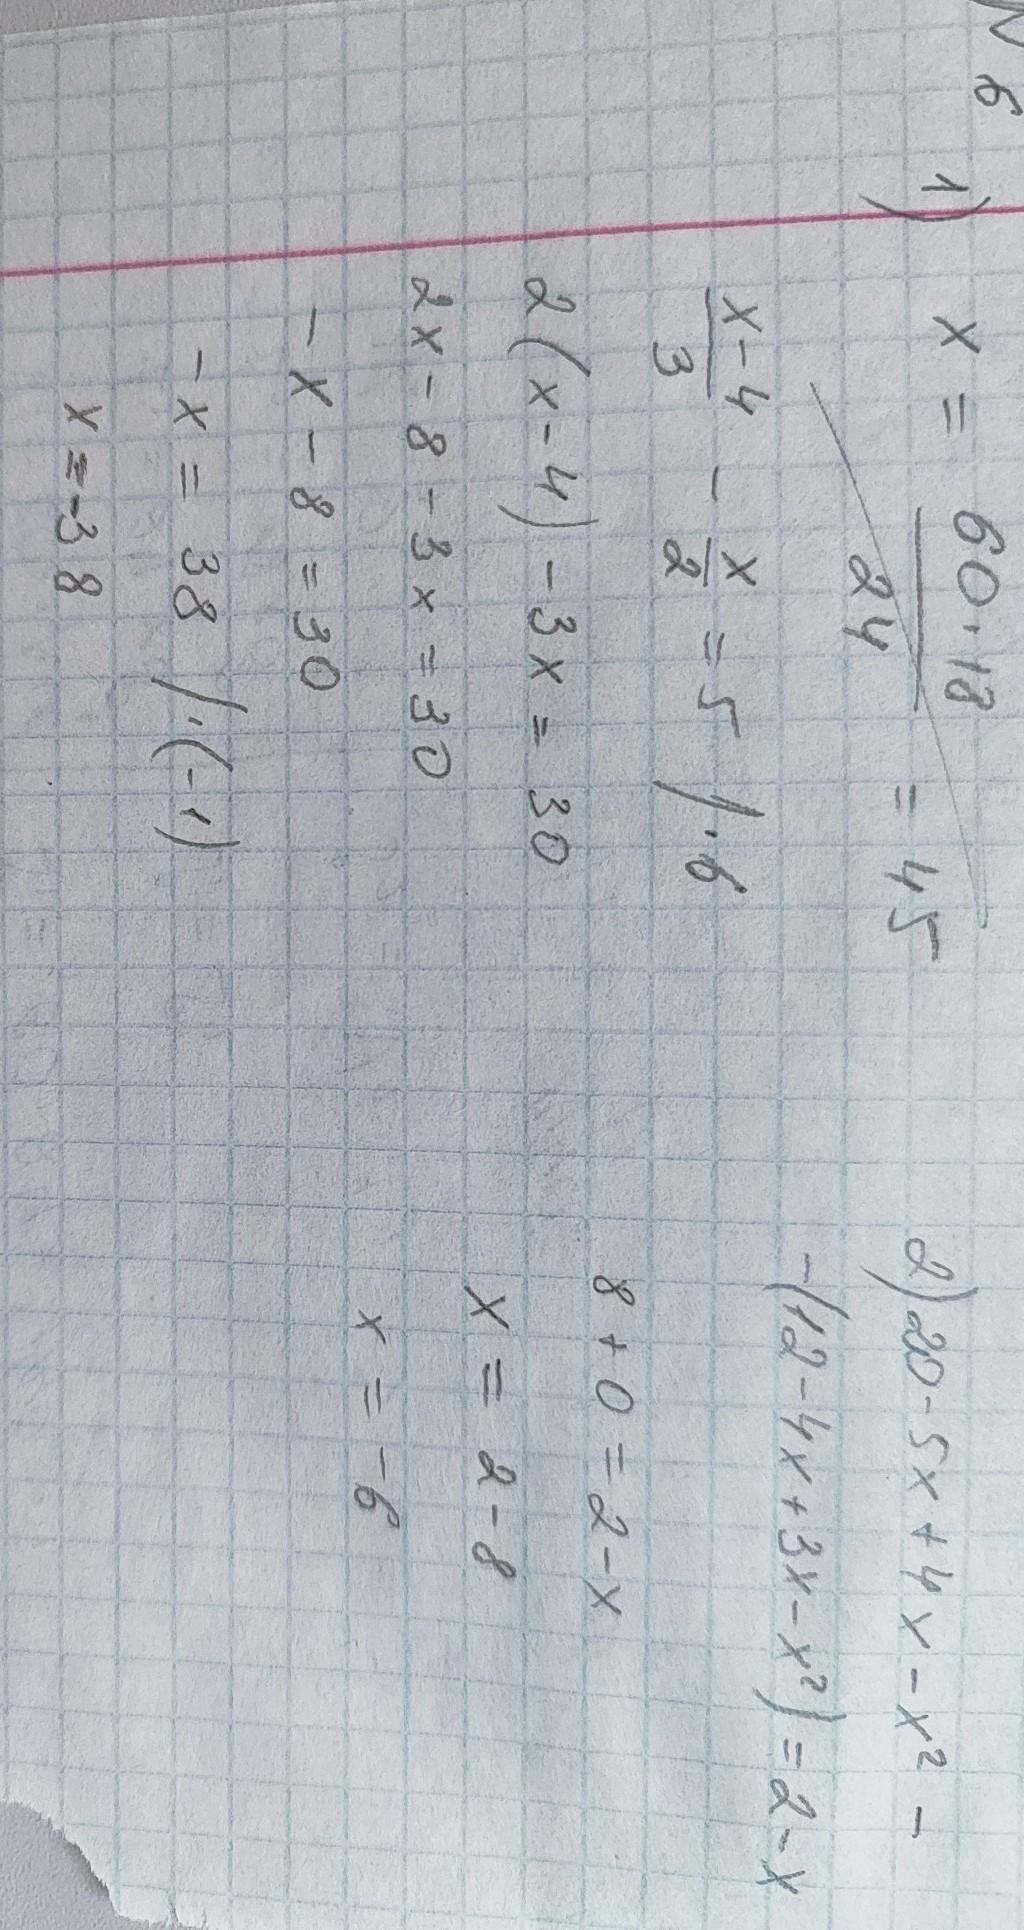 N6
1) x = 60·18/24 = 45
(x-4)/3 - x/2 = 5 /·6
2(x-4) - 3x = 30
2x - 8 - 3x = 30
-x - 8 = 30
-x = 38 /·(-1)
x = -38
2) 20 - 5x + 4x - x² -
-(12 - 4x + 3x - x²) = 2 - x
8 + 0 = 2 - x
x = 2 - 8
x = -6